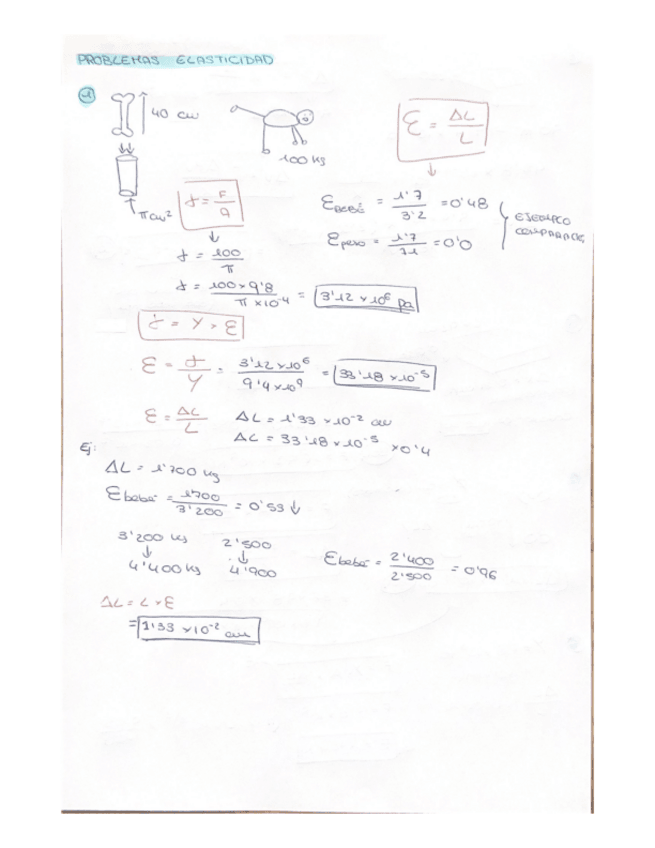 PROBLEMAS ELASTICIDAD
1
40 cm
100 kg
π cm²
ε = ΔL / L
ε BEBÉ = 1'7 / 3'2 = 0'48
ε peso = 1'7 / 71 = 0'0
EJEMPLO
σ = F / a
σ = 100 / π
σ = 100 × 9'8 / π × 10⁻⁴ = 3'12 × 10⁶ pa
σ = Y × ε
ε = σ / Y = 3'12 × 10⁶ / 9'4 × 10⁹ = 33'18 × 10⁻⁵
ε = ΔL / L
ΔL = 1'33 × 10⁻² cm
ΔL = 33'18 × 10⁻⁵ × 0'4
Ej:
ΔL = 1'700 kg
ε bebé = 1700 / 3'200 = 0'53 ↓
3'200 kg 2'500
↓ ↓
4'400 kg 4'900
ε bebé = 2'400 / 2'500 = 0'96
ΔL = L × ε
= 1'33 × 10⁻² cm